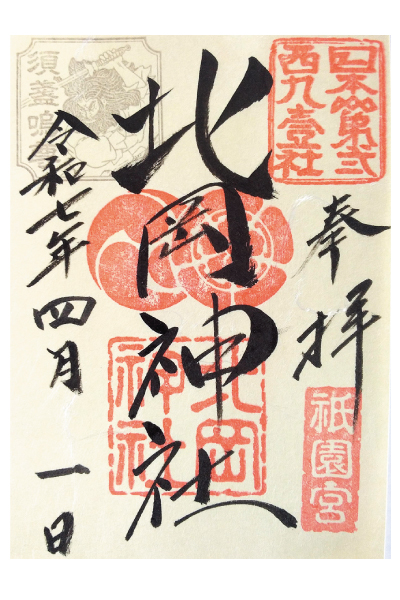 日本第弐
西九壹社
奉拝
祇園宮
北岡神社
北岡
神社
須盞嗚
令和七年四月一日